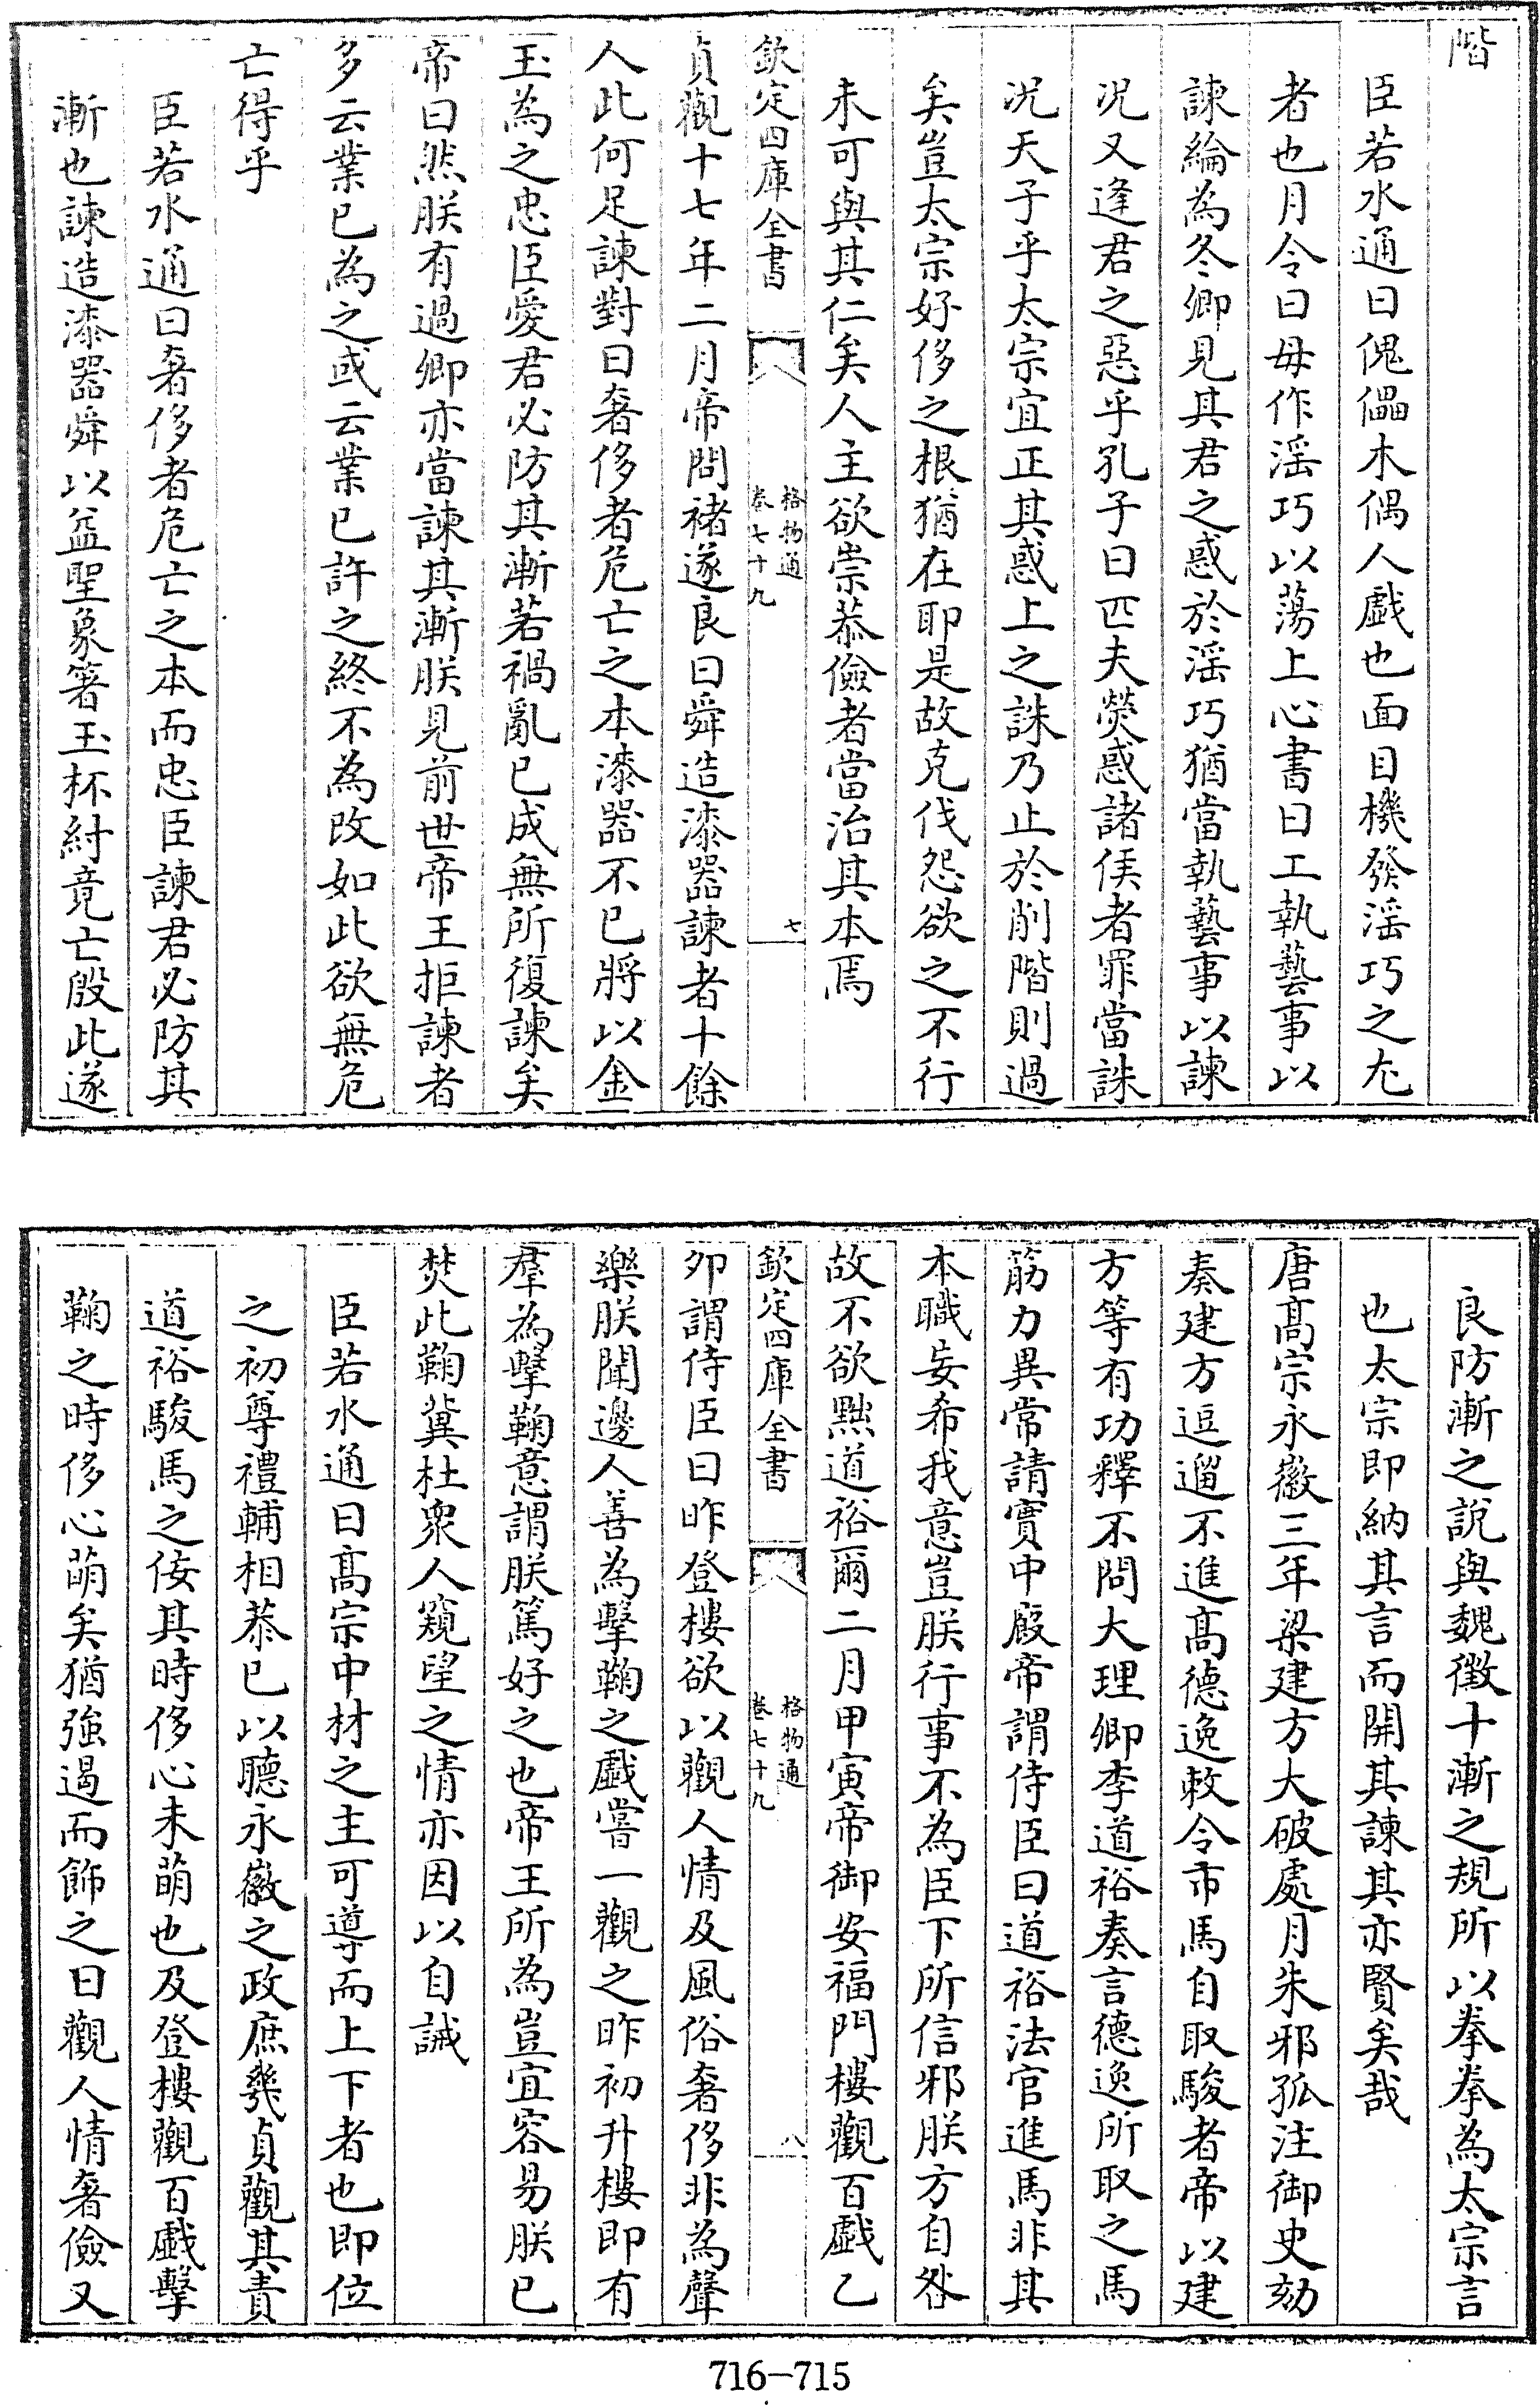 階
臣若水通曰傀儡木偶人戲也面目機發滛巧之尤
者也月令曰毋作滛巧以蕩上心書曰工執藝事以
諫綸為冬卿見其君之惑於滛巧猶當執藝事以諫
况又逢君之惡乎孔子曰匹夫熒惑諸侯者罪當誅
况天子乎太宗宜正其惑上之誅乃止於削階則過
矣豈太宗好侈之根猶在耶是故克伐怨欲之不行
未可與其仁矣人主欲崇恭儉者當治其本焉
欽定四庫全書
格物通
卷七十九
七
貞觀十七年二月帝問褚遂良曰舜造漆器諫者十餘
人此何足諫對曰奢侈者危亡之本漆器不已將以金
玉為之忠臣愛君必防其漸若禍亂已成無所復諫矣
帝曰然朕有過卿亦當諫其漸朕見前世帝王拒諫者
多云業已為之或云業已許之終不為改如此欲無危
亡得乎
臣若水通曰奢侈者危亡之本而忠臣諫君必防其
漸也諫造漆器舜以益聖象箸玉杯紂竟亡殷此遂
良防漸之說與魏徵十漸之規所以拳拳為太宗言
也太宗即納其言而開其諫其亦賢矣哉
唐髙宗永徽三年梁建方大破處月朱邪孤注御史劾
奏建方逗遛不進髙德逸敕令市馬自取駿者帝以建
方等有功釋不問大理卿李道裕奏言德逸所取之馬
筋力異常請實中廄帝謂侍臣曰道裕法官進馬非其
本職妄希我意豈朕行事不為臣下所信邪朕方自咎
故不欲黜道裕爾二月甲寅帝御安福門樓觀百戲乙
欽定四庫全書
格物通
卷七十九
八
夘謂侍臣曰昨登樓欲以觀人情及風俗奢侈非為聲
樂朕聞邊人善為擊鞠之戲嘗一觀之昨初升樓即有
羣為擊鞠意謂朕篤好之也帝王所為豈宜容易朕已
焚此鞠冀杜衆人窺望之情亦因以自誡
臣若水通曰髙宗中材之主可導而上下者也即位
之初尊禮輔相恭已以聽永徽之政庶幾貞觀其責
道裕駿馬之侫其時侈心未萌也及登樓觀百戲擊
鞠之時侈心萌矣猶強遏而飾之曰觀人情奢儉又
716-715